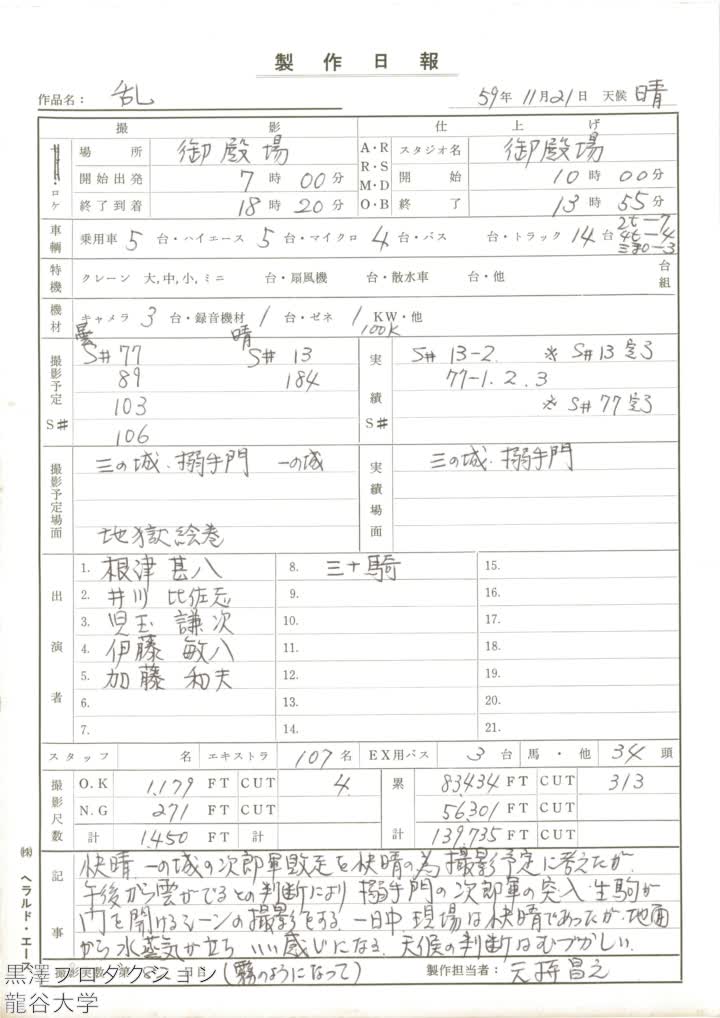 製作日報
作品名： 乱 59年 11月21日 天候 晴
撮影 仕上げ
ロケ 場所 御殿場 A・R R・S M・D O・B スタジオ名 御殿場
開始出発 7時 00分 開始 10時 00分
終了到着 18時 20分 終了 13時 55分
車輌 乗用車 5 台・ハイエース 5 台・マイクロ 4 台・バス 台・トラック 14 台 2t－7 4t－4
特機 クレーン 大,中,小,ミニ 台・扇風機 台・散水車 台・他 台 組
機材 キャメラ 3 台・録音機材 1 台・ゼネ 1 KW・他
100K
曇 晴
撮影予定 S# S#77 S# 13 実績 S# S# 13-2. ※ S#13 完了
89 184 77-1.2.3
103 ※ S#77 完了
106
撮影予定場面 三の城.搦手門 一の城 実績場面 三の城.搦手門
地獄絵巻
出演者
1. 根津甚八 8. 三十騎 15.
2. 井川比佐志 9. 16.
3. 児玉謙次 10. 17.
4. 伊藤敏八 11. 18.
5. 加藤和夫 12. 19.
6. 13. 20.
7. 14. 21.
スタッフ 名 エキストラ 107名 EX用バス 3台 馬・他 34頭
撮影尺数 O.K 1,179 FT CUT 4 累計 83,434 FT CUT 313
N.G 271 FT CUT 56,301 FT CUT
計 1,450 FT 計 139,735 FT
記事 快晴 一の城の次郎軍敗走を快晴の為撮影予定に考えたが.
午後から雲がでるとの判断により搦手門の次郎軍の突入.生駒が
門を開けるシーンの撮影をする. 一日中現場は快晴であったが.地面
から水蒸気が立ちいい感じになる. 天候の判断はむづかしい.
(霧のようになって)
撮影実数 第 日 製作担当者：
㈱ヘラルド・エース
黒澤プロダクション
龍谷大学